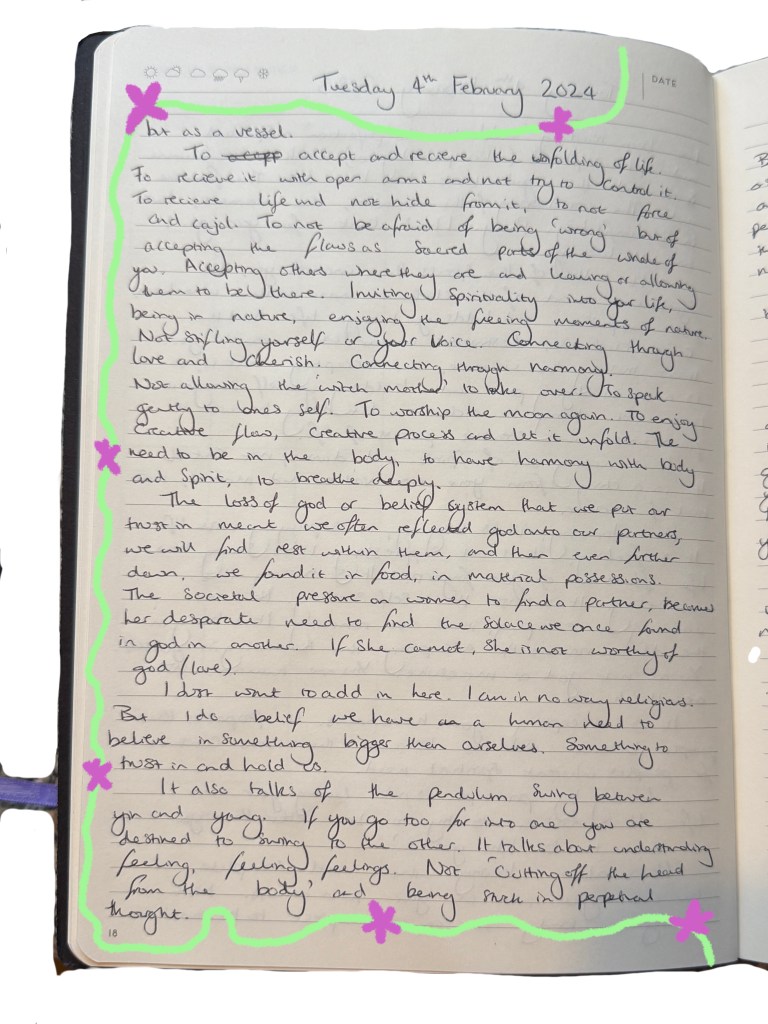 Tuesday 4th February 2024
DATE
but as a vessel.
To accept and recieve the unfolding of life.
To recieve it with open arms and not try to control it.
To recieve life and not hide from it, to not force
and cajol. To not be afraid of being 'wrong' but of
accepting the flaws as sacred parts of the whole of
you. Accepting others where they are and leaving or allowing
them to be there. Inviting Spirituality into your life,
being in nature, enjoying the freeing moments of nature.
Not stifling yourself or your voice. Connecting through
love and cherish. Connecting through harmony.
Not allowing the 'witch mother' to take over. To speak
gently to ones self. To worship the moon again. To enjoy
Creative flow, creative process and let it unfold. The
need to be in the body, to have harmony with body
and Spirit, to breathe deeply.
The loss of god or belief system that we put our
trust in meant we often reflected god onto our partners,
we will find rest within them, and then even further
down, we found it in food, in material possessions.
The societal pressure on women to find a partner, becomes
her desparate need to find the solace we once found
in god in another. If she cannot, she is not worthy of
god (love).
I just want to add in here. I am in no way religious.
But I do belief we have as a human need to
believe in something bigger than ourselves. Something to
trust in and hold us.
It also talks of the pendulum swing between
yin and yang. If you go too far into one you are
destined to swing to the other. It talks about understanding
feeling, feeling feelings. Not 'Cutting off the head
from the body' and being stuck in perpetual
thought.
18